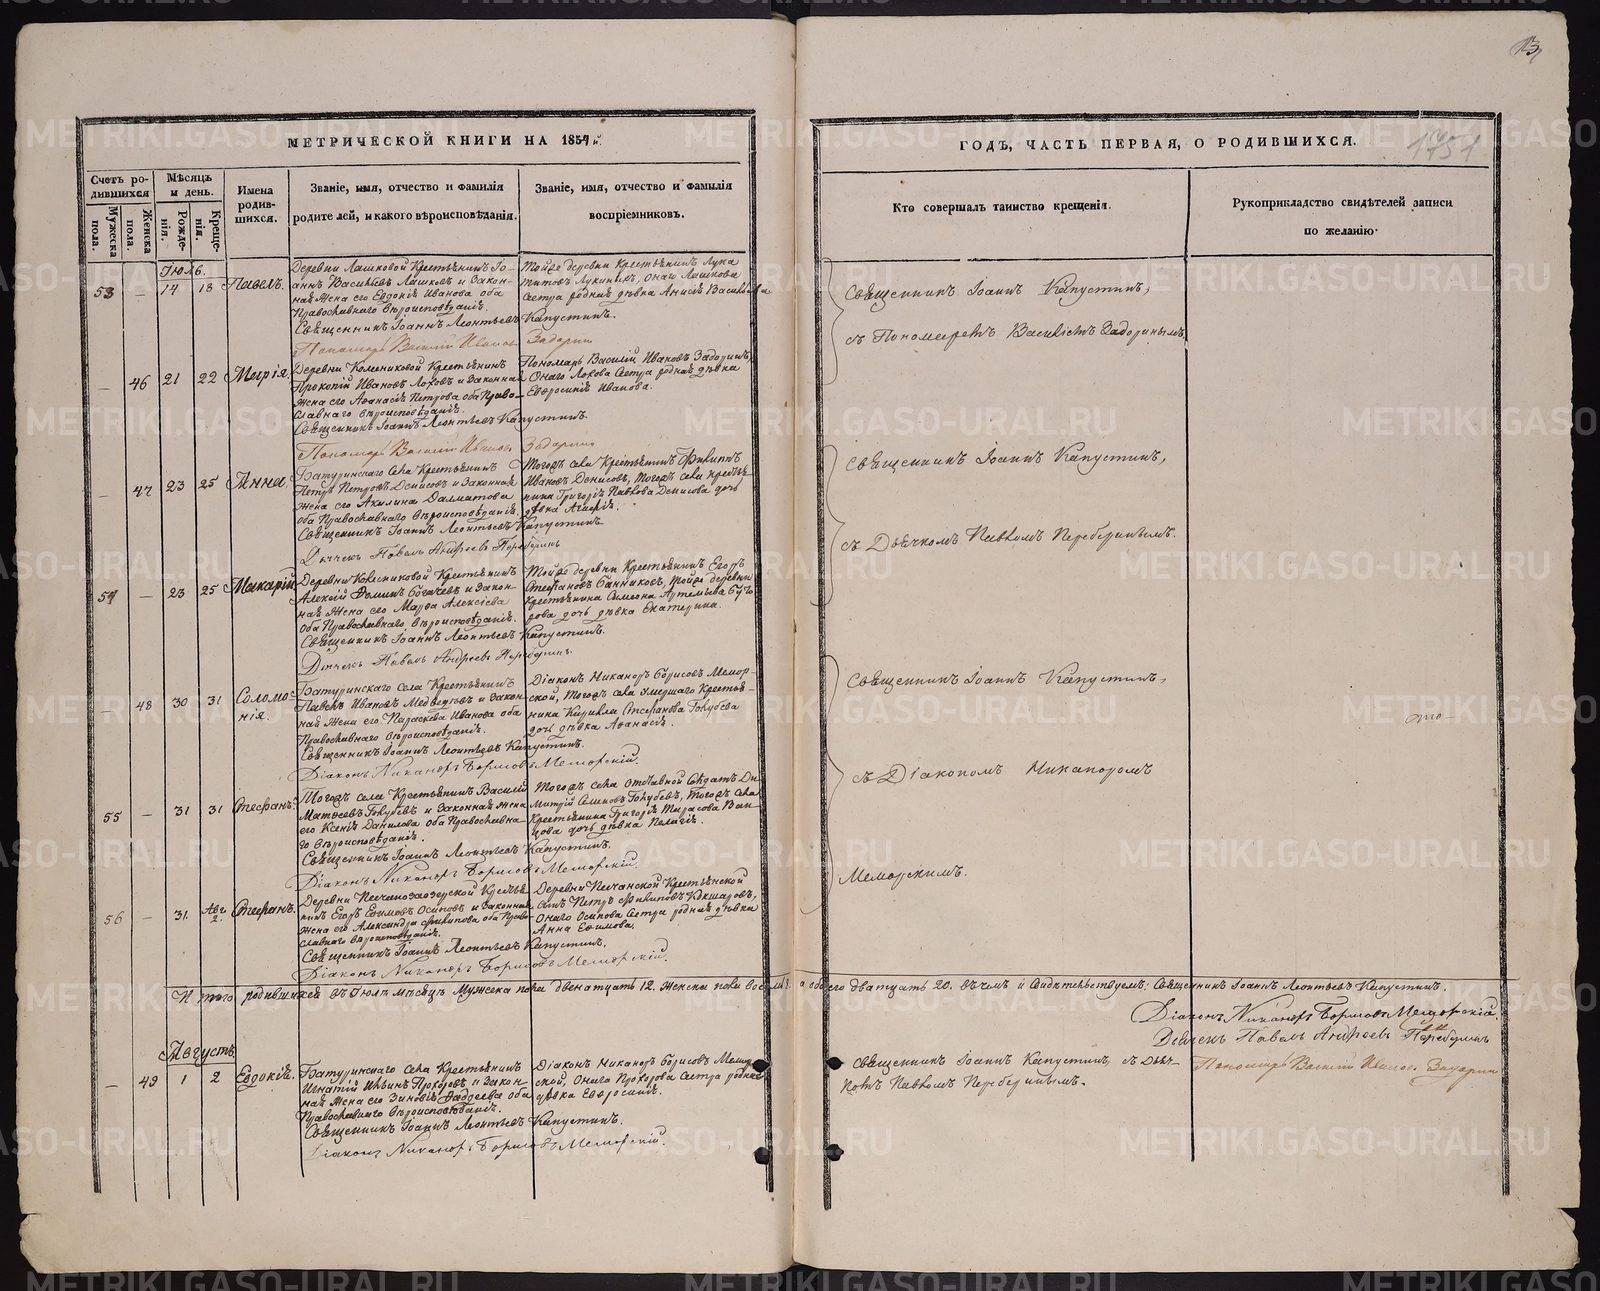 МЕТРИЧЕСКОЙ КНИГИ НА 1854
Счетъ родившихся
Мѣсяцъ и день.
Имена родившихся.
Званіе, имя, отчество и фамилія родителей, и какого вѣроисповѣданія.
Званіе, имя, отчество и фамилія воспріемниковъ.
Мужеска пола.
Женска пола.
Рожденія.
Крещенія.
Іюль.
53 — 14 18 Павелъ.
Деревни Лашковой Крестьянинъ Іоаннъ Васильевъ Лашковъ и законная жена его Евдокія Иванова оба Православнаго вѣроисповѣданія.
Тойже деревни Крестьянинъ Лука Титовъ Лукиныхъ, Онаго Лашкова Сестра родная дѣвка Анисья Васильева
Священникъ Іоаннъ Леонтьевъ Капустинъ.
Пономарь Василій Ивановъ Задоринъ
— 46 21 22 Марія.
Прокопій Ивановъ Лоховъ и законная
жена его Афанасія Петрова оба Православнаго вѣроисповѣданія.
Пономарь Василій Ивановъ Задоринъ,
Онаго Лохова Сестра родная дѣвка
Евфросинія Иванова.
Священникъ Іоаннъ Леонтьевъ Капустинъ
Пономарь Василій Ивановъ Задоринъ
— 47 23 25 Анна.
Батуринскаго села Крестьянинъ
Петръ Петровъ Денисовъ и законная
жена его Акилина Далматова
оба Православнаго вѣроисповѣданія.
Тогожъ села Крестьянинъ Филиппъ
Ивановъ Денисовъ, Тогожъ села крестьянина Григорія Павлова Денисова дочь
дѣвка Агафія.
Священникъ Іоаннъ Леонтьевъ Капустинъ
Дьячекъ Павелъ Андреевъ Переберинъ
54 — 23 25 Макарій
Деревни Колесниковой Крестьянинъ
Алексій Фоминъ Богачевъ и законная жена его Марфа Алексіева
Оба Православнаго вѣроисповѣданія.
Тойже деревни Крестьянинъ Егоръ
Стефановъ Банниковъ, тойже деревни
Крестьянина Симеона Артемьева
дочь дѣвка Екатерина.
Священникъ Іоаннъ Леонтьевъ Капустинъ.
Дьячекъ Павелъ Андреевъ Переберинъ
— 48 30 31 Соломонія.
Батуринскаго села Крестьянинъ
Павелъ Ивановъ Медвѣдевъ и законная жена его Параскева Иванова оба
Православнаго вѣроисповѣданія.
Діаконъ Никаноръ Борисовъ Меморской, Тогожъ села умершаго Крестьянина Кирилла Стефанова Голубева
дочь дѣвка Афанасія.
Священникъ Іоаннъ Леонтьевъ Капустинъ.
Діаконъ Никаноръ Борисовъ Меморскій.
55 — 31 31 Стефанъ.
Тогожъ села Крестьянинъ Василій
Матфеевъ Голубевъ и законная жена
его Ксенія Данилова оба Православнаго вѣроисповѣданія.
Тогожъ села отставной Солдатъ Димитрій Семеновъ Голубевъ, Тогожъ села
Крестьянина Григорія Тарасова
дочь дѣвка Пелагія.
Священникъ Іоаннъ Леонтьевъ Капустинъ.
Діаконъ Никаноръ Борисовъ Меморскій.
56 — 31 Авг. 2. Стефанъ.
Егоръ Ефимовъ Осиповъ и законная
жена его Александра Филипова оба Православнаго вѣроисповѣданія.
Деревни Песчанской Крестьянской
сынъ Петръ Филиповъ Кокшаровъ,
Онаго Осипова Сестра родная дѣвка
Анна Ефимова.
Священникъ Іоаннъ Леонтьевъ Капустинъ.
Діаконъ Никаноръ Борисовъ Меморскій.
Итого родившихся въ Іюлѣ мѣсяцѣ Мужеска пола двенатцать 12. Женска пола восемь 8. а обоего дватцать 20. въ чемъ и свидѣтельствуемъ: Священникъ Іоаннъ Леонтьевъ Капустинъ.
Діаконъ Никаноръ Борисовъ Меморскій.
Дьячекъ Павелъ Андреевъ Переберинъ
Пономарь Василій Ивановъ Задоринъ
Августъ
— 49 1 2 Евдокія.
Батуринскаго села Крестьянинъ
Игнатій Ильинъ Прохоровъ и законная жена его Зиновія Фаддеева оба
Православнаго вѣроисповѣданія.
Діаконъ Никаноръ Борисовъ Меморской, Онаго Прохорова Сестра родная
дѣвка Евфросинія.
Священникъ Іоаннъ Леонтьевъ Капустинъ.
Діаконъ Никаноръ Борисовъ Меморскій.
13
ГОДЪ, ЧАСТЬ ПЕРВАЯ, О РОДИВШИХСЯ.
Кто совершалъ таинство крещенія.
Рукоприкладство свидѣтелей записи по желанію.
Священникъ Іоаннъ Капустинъ,
съ Пономаремъ Василіемъ Задоринымъ.
Священникъ Іоаннъ Капустинъ,
съ Дьячкомъ Павломъ Переберинымъ.
Священникъ Іоаннъ Капустинъ,
съ Діакономъ Никаноромъ
Меморскимъ.
Священникъ Іоаннъ Капустинъ съ Дьячкомъ Павломъ Переберинымъ.
METRIKI.GASO-URAL.RU